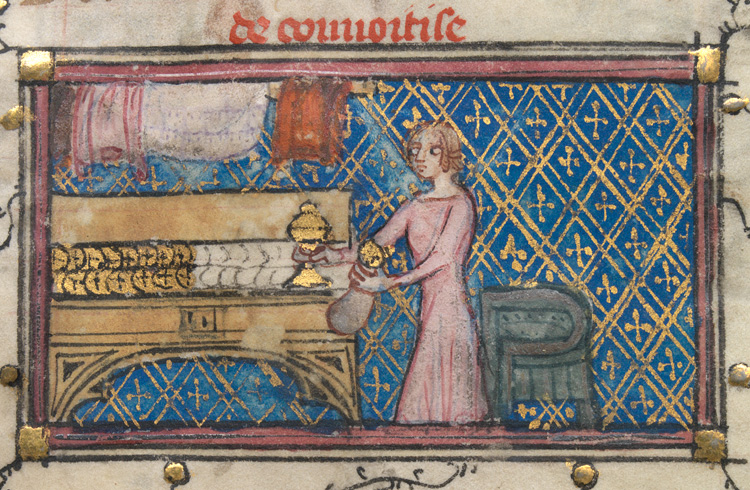 de couuoitise